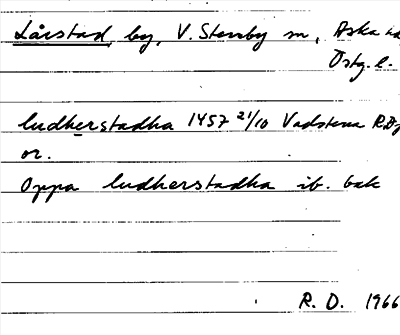 Lårstad, by, V. Stenby sn, Aska
Östg. l.
ludherstadha 1457 21/10 Vadstena
or.
Oppa ludherstadha ib. bak
R. D. 1966